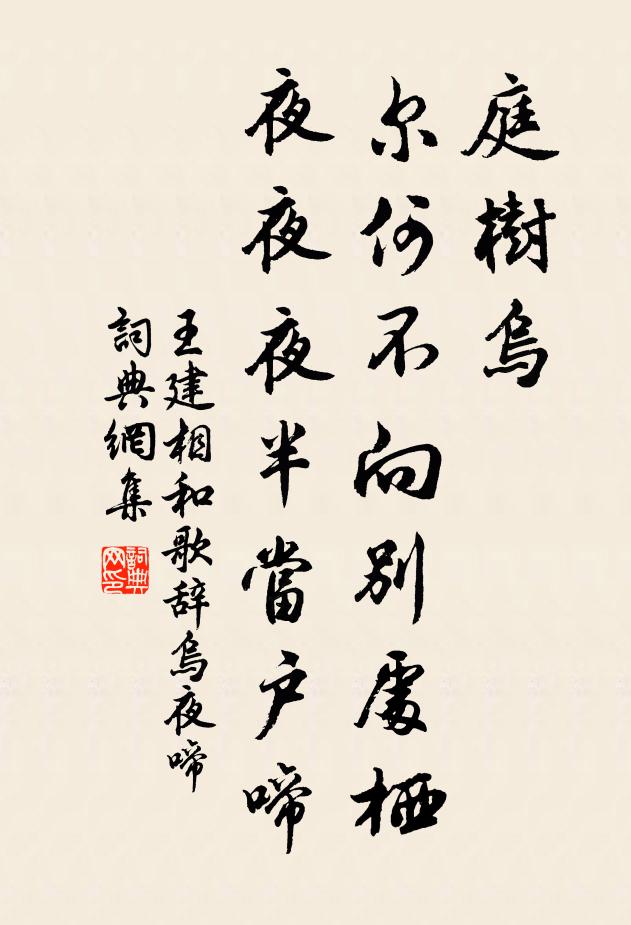 庭樹烏
尔何不向別處栖
夜夜夜半當戶啼
王建相和歌辞烏夜啼
詞典網集
詞典网印